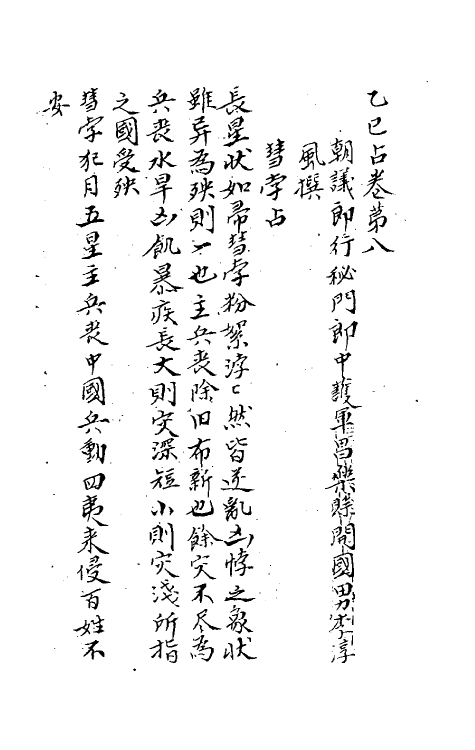 乙巳占卷第八
朝議郎行秘門郎中護軍昌樂縣開國男李淳
風撰
彗孛占
長星狀如帚彗孛粉絮浡〻然皆逆亂凶悖之象狀
雖异為殃則一也主兵丧除旧布新也餘灾不尽為
兵丧水旱凶飢暴疾長大則灾深短小則灾淺所指
之國受殃
彗孛犯月五星主兵丧中國兵動四夷来侵百姓不
安